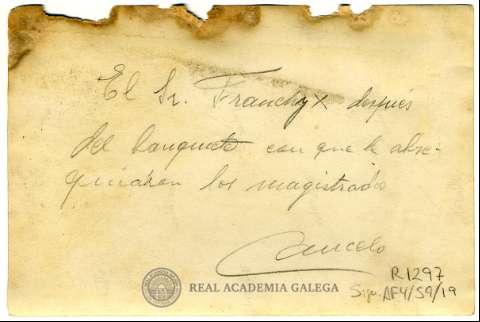 El Sr. Franchy x después
del banquete con que le obse-
quiaron los magistrados
Cancelo
R1297
Sign. AF4/59/19
REAL ACADEMIA GALEGA